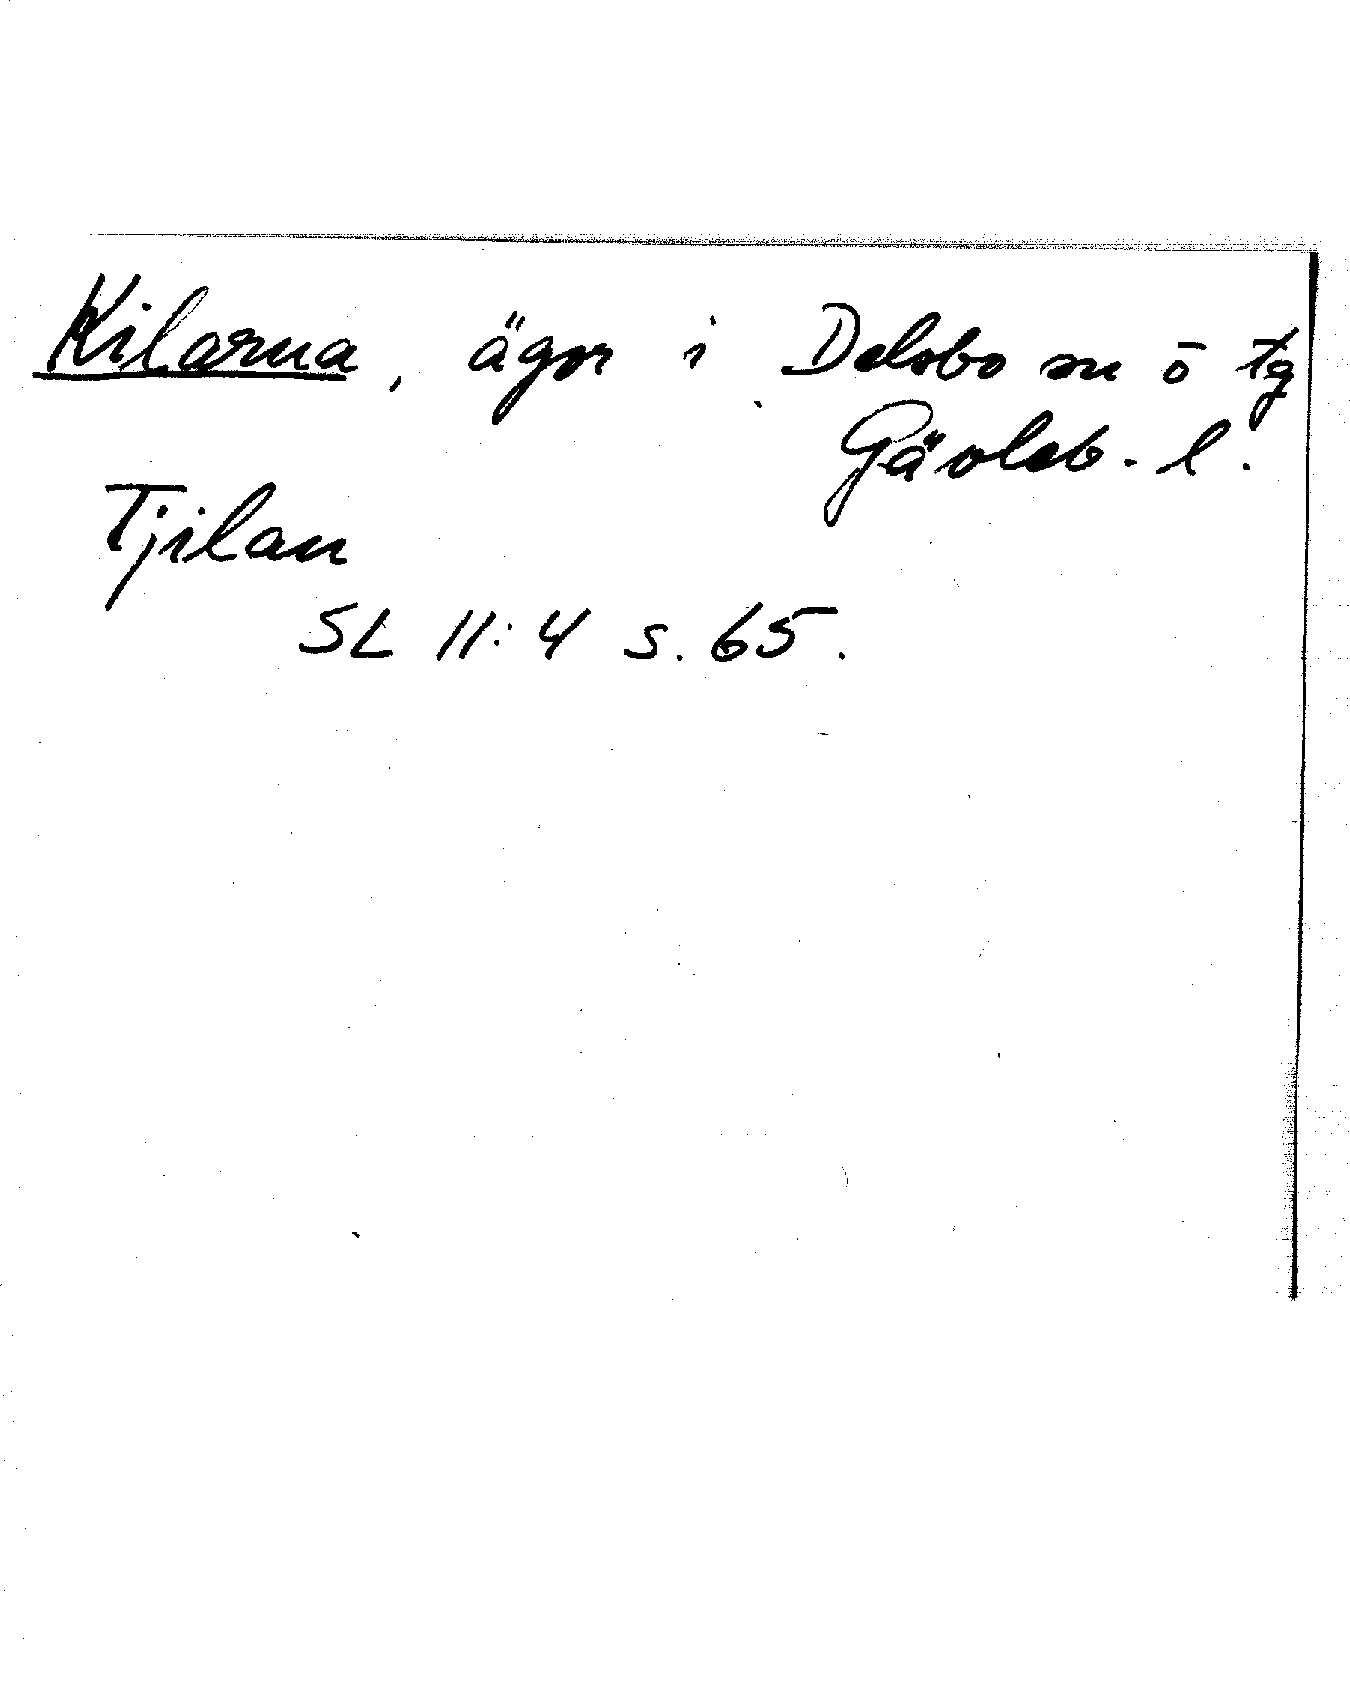 Kilarna, ägor i Delsbo sn ō tg
Gävleb. l.
Tjilan
SL 11:4 s. 65.